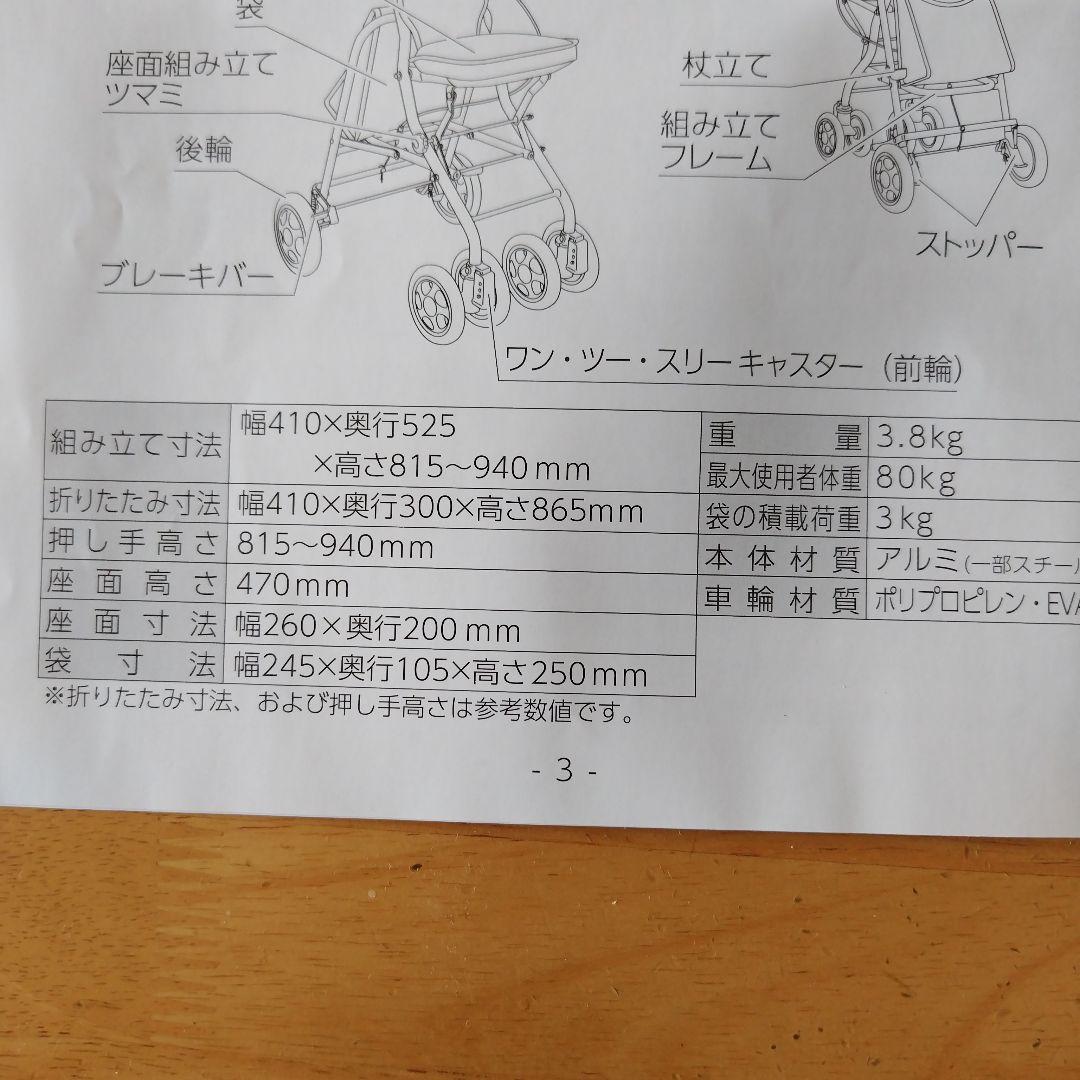 袋
座面組み立て
ツマミ
後輪
ブレーキバー
ワン・ツー・スリーキャスター（前輪）
杖立て
組み立て
フレーム
ストッパー
組み立て寸法 幅410×奥行525
×高さ815～940mm
折りたたみ寸法 幅410×奥行300×高さ865mm
押し手高さ 815～940mm
座面高さ 470mm
座面寸法 幅260×奥行200mm
袋寸法 幅245×奥行105×高さ250mm
重量 3.8kg
最大使用者体重 80kg
袋の積載荷重 3kg
本体材質 アルミ(一部スチール
車輪材質 ポリプロピレン・EVA
※折りたたみ寸法、および押し手高さは参考数値です。
- 3 -